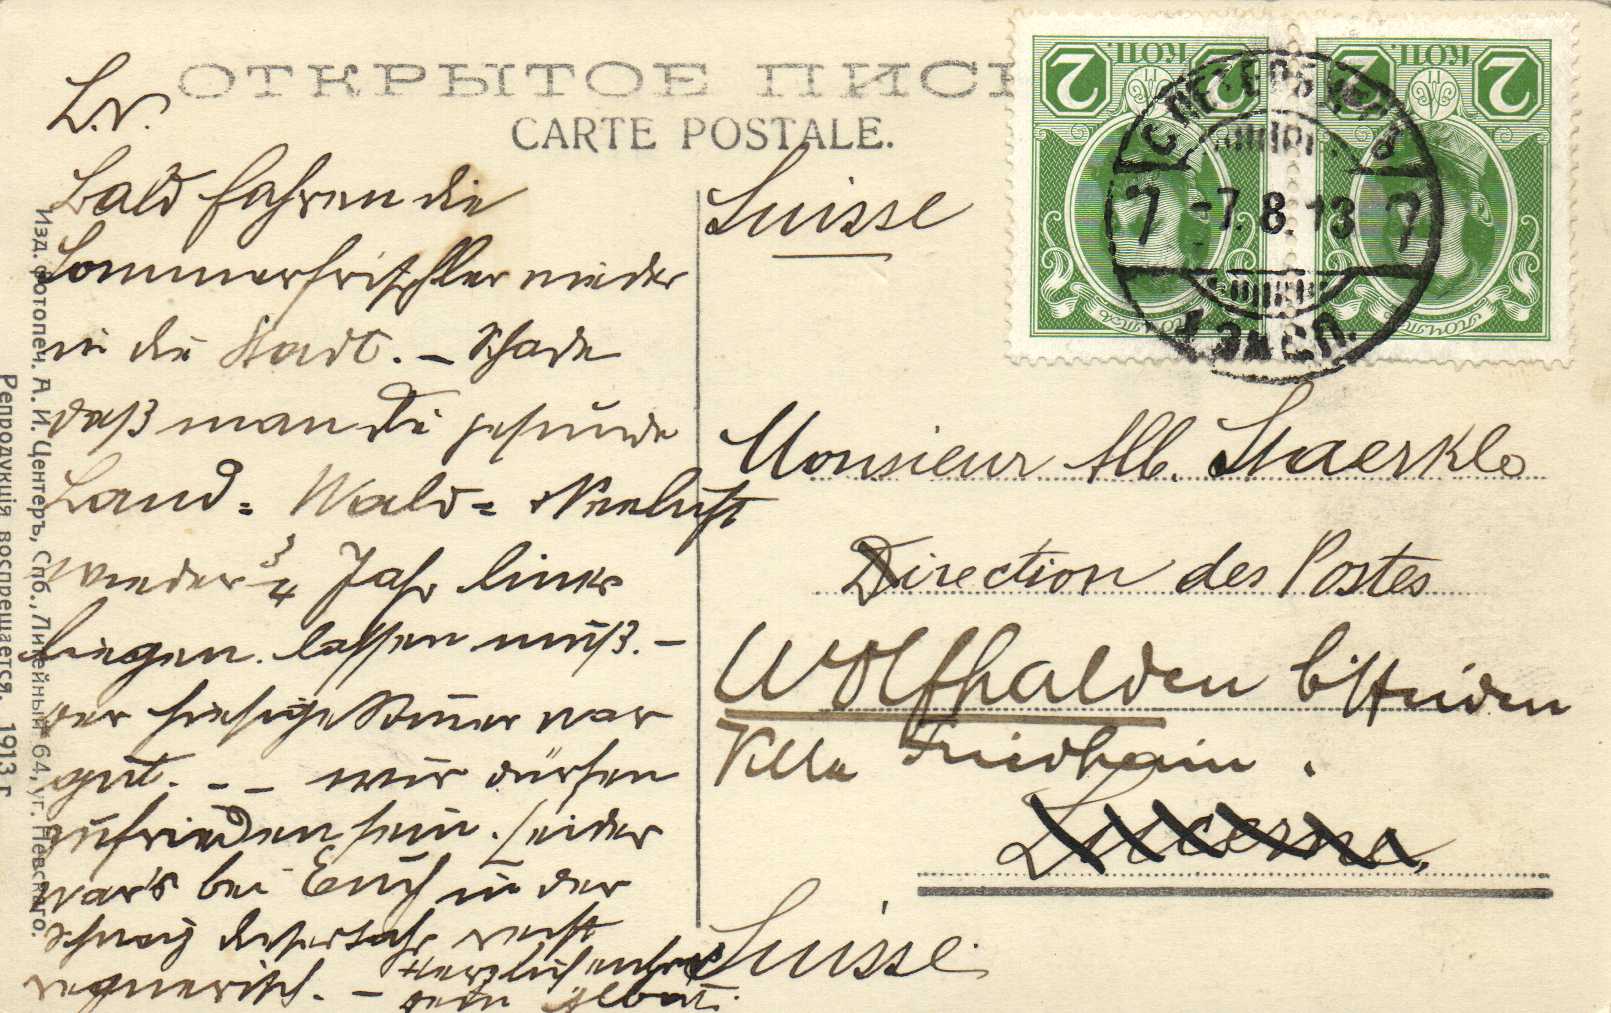 ОТКРЫТОЕ ПИС
CARTE POSTALE.
L.V.
Bald fahren die
Sommerfrischler wieder
in die Stadt. – Schade
daß man die gesunde
Land= Wald= + Seeluft
wieder 3/4 Jahr links
liegen lassen muß. –
der hiesige Sommer war
gut. – – wir dürfen
zufrieden sein. Leider
war's bei Euch in der
Schweiz dieses Jahr recht
regnerisch. – Herzlichen Gruß
Dein Albert.
Suisse
Monsieur Alb. Staerkle
Direction des Postes
Wolfhalden b/Heiden
Villa Friedheim.
Lucerne,
Suisse.
2 КОП. 2
2 КОП. 2
ПОЧТА
ПОЧТА
С.ПЕТЕРБУРГЪ
7 -7.8.13 7
7 ЭКСП.
Изд. фотопеч. А. И. Центеръ, Спб., Литейный 64, уг. Невскаго.
Репродукція воспрещается. 1913 г